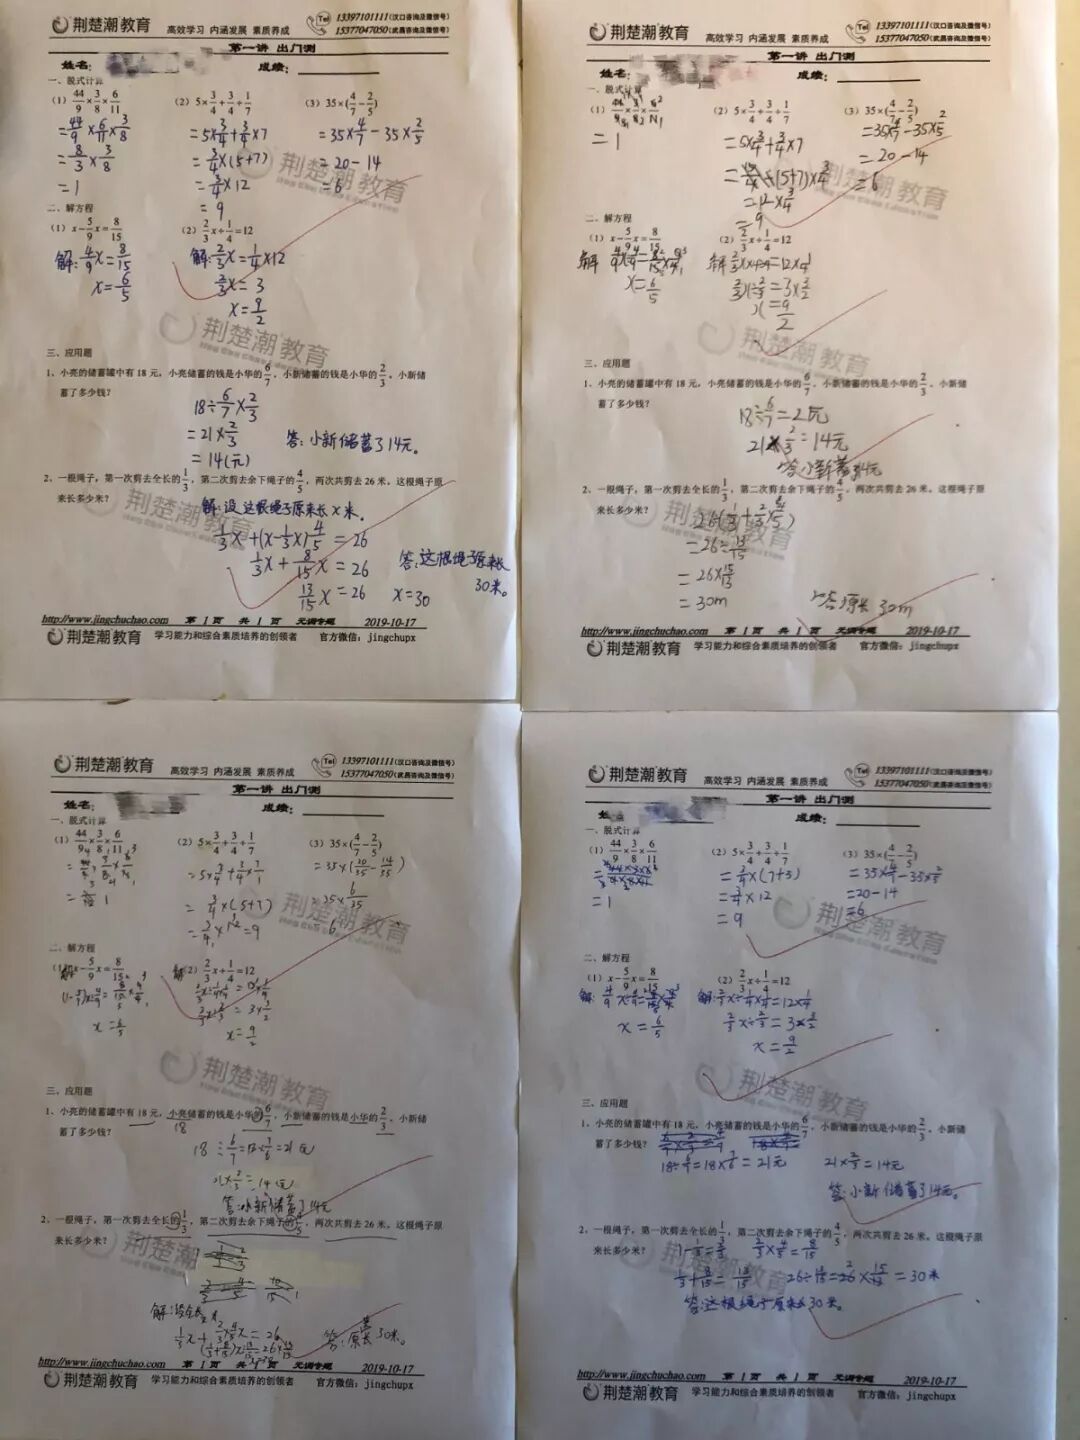 荆楚潮教育 高效学习 内涵发展 素质养成 Tel 13397101111(汉口咨询及微信号)
15377047050(武昌咨询及微信号)
第一讲 出门测
姓名: 成绩:
一、脱式计算
(1) 44/9×3/8×6/11 (2) 5×3/4+3/4÷1/7 (3) 35×(4/7-2/5)
=44/9×6/11×3/8 =5×3/4+3/4×7 =35×4/7-35×2/5
=8/3×3/8 =3/4×(5+7) =20-14
=1 =3/4×12 =6
=9
二、解方程
(1) x-5/9x=8/15 (2) 2/3x÷1/4=12
解:4/9x=8/15 解:2/3x=1/4×12
x=6/5 2/3x=3
x=9/2
三、应用题
1、小亮的储蓄罐中有18元,小亮储蓄的钱是小华的6/7,小新储蓄的钱是小华的2/3。小新储
蓄了多少钱?
18÷6/7×2/3
=21×2/3 答:小新储蓄了14元。
=14(元)
2、一根绳子,第一次剪去全长的1/3,第二次剪去余下绳子的4/5,两次共剪去26米。这根绳子原
来长多少米?
解:设这根绳子原来长x米。
1/3x+(x-1/3x)4/5=26
1/3x+8/15x=26 答:这根绳子原来长
13/15x=26 x=30 30米。
http://www.jingchuchao.com 第 1 页 共 1 页 元调专题 2019-10-17
荆楚潮教育 学习能力和综合素质培养的创领者 官方微信:jingchupx
荆楚潮教育 高效学习 内涵发展 素质养成 Tel 13397101111(汉口咨询及微信号)
15377047050(武昌咨询及微信号)
第一讲 出门测
姓名: 成绩:
一、脱式计算
(1) 44/9×3/8×6/11 (2) 5×3/4+3/4÷1/7 (3) 35×(4/7-2/5)
=1 =5×3/4+3/4×7 =35×4/7-35×2/5
=(5+7)×3/4 =20-14
=12×3/4 =6
=9
二、解方程
(1) x-5/9x=8/15 (2) 2/3x÷1/4=12
解 解
x=6/5 2/3x÷2/3=3×3/2
x=9/2
三、应用题
1、小亮的储蓄罐中有18元,小亮储蓄的钱是小华的6/7,小新储蓄的钱是小华的2/3。小新储
蓄了多少钱?
18÷6/7=21元
21×2/3=14元
答小新蓄了14元
2、一根绳子,第一次剪去全长的1/3,第二次剪去余下绳子的4/5,两次共剪去26米。这根绳子原
来长多少米?
26÷(1/3+2/3×4/5)
=26÷13/15
=26×15/13
=30m 答原长30m
http://www.jingchuchao.com 第 1 页 共 1 页 元调专题 2019-10-17
荆楚潮教育 学习能力和综合素质培养的创领者 官方微信:jingchupx
荆楚潮教育 高效学习 内涵发展 素质养成 Tel 13397101111(汉口咨询及微信号)
15377047050(武昌咨询及微信号)
第一讲 出门测
姓名: 成绩:
一、脱式计算
(1) 44/9×3/8×6/11 (2) 5×3/4+3/4÷1/7 (3) 35×(4/7-2/5)
=5×3/4+3/4×7/1 =35×(20/35-14/35)
=1 =3/4×(5+7) =35×6/35
=3/4×12=9 6
二、解方程
(1) x-5/9x=8/15 (2) 2/3x÷1/4=12
x=6/5 x=9/2
三、应用题
1、小亮的储蓄罐中有18元,小亮储蓄的钱是小华的6/7,小新储蓄的钱是小华的2/3。小新储
蓄了多少钱?
18÷6/7=18×7/6=21元
21×2/3=14元
答:小新储蓄了14元
2、一根绳子,第一次剪去全长的1/3,第二次剪去余下绳子的4/5,两次共剪去26米。这根绳子原
来长多少米?
解:设全长x
1/3x+2/3×4/5x=26 答:原长30米。
http://www.jingchuchao.com 第 1 页 共 1 页 元调专题 2019-10-17
荆楚潮教育 学习能力和综合素质培养的创领者 官方微信:jingchupx
荆楚潮教育 高效学习 内涵发展 素质养成 Tel 13397101111(汉口咨询及微信号)
15377047050(武昌咨询及微信号)
第一讲 出门测
姓 成绩:
一、脱式计算
(1) 44/9×3/8×6/11 (2) 5×3/4+3/4÷1/7 (3) 35×(4/7-2/5)
=3/4×(7+5) =35×4/7-35×2/5
=1 =3/4×12 =20-14
=9 =6
二、解方程
(1) x-5/9x=8/15 (2) 2/3x÷1/4=12
解: 解:2/3x÷1/4×1/4=12×1/4
x=6/5 2/3x÷2/3=3×3/2
x=9/2
三、应用题
1、小亮的储蓄罐中有18元,小亮储蓄的钱是小华的6/7,小新储蓄的钱是小华的2/3。小新储
蓄了多少钱?
18÷6/7=18×7/6=21元 21×2/3=14元
答:小新储蓄了14元。
2、一根绳子,第一次剪去全长的1/3,第二次剪去余下绳子的4/5,两次共剪去26米。这根绳子原
来长多少米? 1-1/3=2/3 2/3×4/5=8/15
1/3+8/15=13/15 26÷13/15=26×15/13=30米
答:这根绳子原来长30米。
http://www.jingchuchao.com 第 1 页 共 1 页 元调专题 2019-10-17
荆楚潮教育 学习能力和综合素质培养的创领者 官方微信:jingchupx